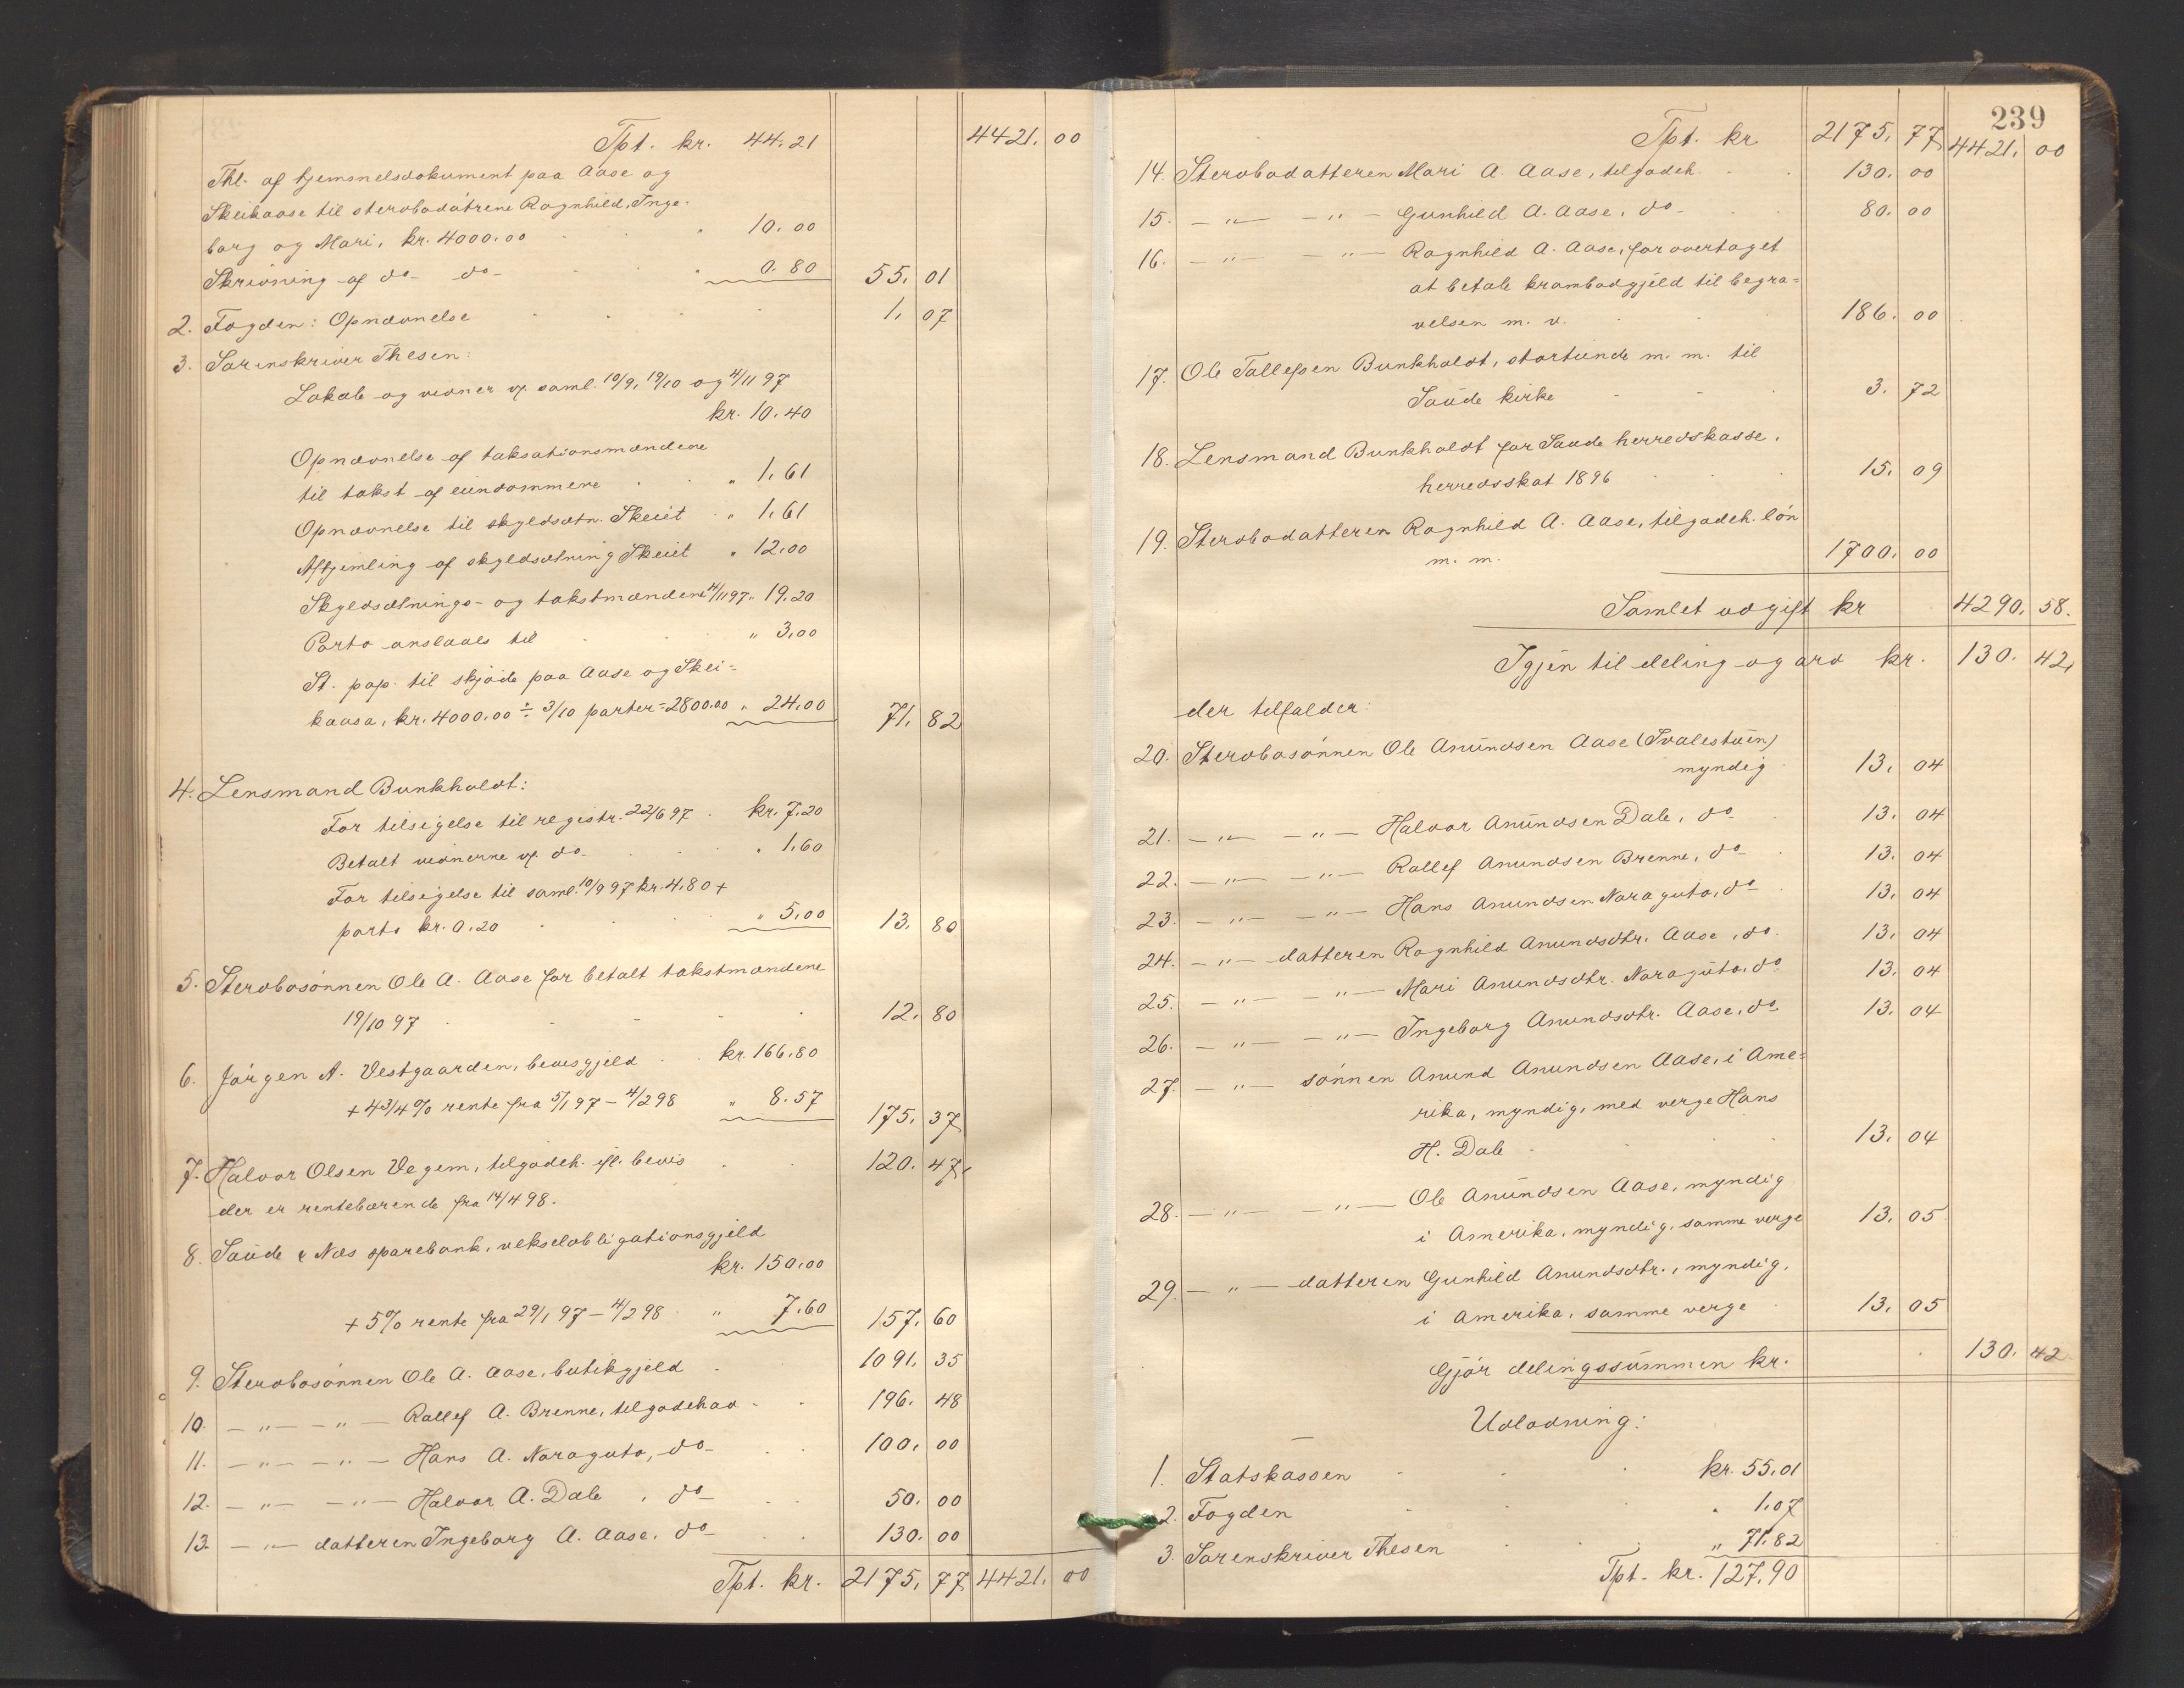 Tpt. kr. 44.21 4421. 00
Thl. af hjemmelsdokument paa Aase og
Skeikaase til sterbodøtrene Ragnhild, Inge-
borg og Mari, kr. 4000.00 " 10.00
Skrivning af do- do- " 0.80 55. 01
2. Fogden: Opnævnelse 1. 07
3. Sorenskriver Thesen:
Lokale og vidner v. saml. 10/9, 19/10 og 4/11 97
kr. 10.40
Opnævnelse af taksationsmændene
til takst af eiendommene " 1.61
Opnævnelse til skyldsætn. Skeiet " 1.61
Afhjemling af skyldsætning Skeiet " 12.00
Skyldsætnings- og takstmændene 4/11 97 " 19.20
Porto anslaaes til " 3.00
St. pap. til skjøde paa Aase og Skei-
kaasa, kr. 4000.00 ÷ 3/10 parter = 2800.00 " 24.00 71. 82
4. Lensmand Bunkholdt:
For tilsigelse til registr. 22/6 97 kr. 7.20
Betalt vidnerne v. do- " 1.60
For tilsigelse til saml. 10/9 97 kr. 4.80 +
porto kr. 0.20 " 5.00 13. 80
5. Stervbosønnen Ole A. Aase for betalt takstmændene
19/10 97 12. 80
6. Jørgen A. Vestgaarden, bevisgjeld kr. 166.80
+ 4 3/4 % rente fra 5/1 97 - 4/2 98 " 8.57 175. 37
7. Halvor Olsen Vegem, tilgodeh. ifl. bevis 120. 47
der er rentebærende fra 14/4 98.
8. Saude & Nes sparebank, vekselobligationsgjeld
kr. 150.00
+ 5% rente fra 29/1 97 - 4/2 98 " 7.60 157. 60
9. Stervbosønnen Ole A. Aase, butikgjeld 1091. 35
10. - " - - " - Rollef A. Brenne, tilgodehav 196. 48
11. - " - - " - Hans A. Noraguto, do- 100. 00
12. - " - - " - Halvor A. Dale, do- 50. 00
13. - " - datteren Ingeborg A. Aase, do- 130. 00
Tpt. kr. 2175. 77 4421. 00
239
Tpt. kr 2175. 77 4421. 00
14. Stervbodatteren Mari A. Aase, tilgodeh. 130. 00
15. - " - - " - Gunhild A. Aase, do- 80. 00
16. - " - - " - Ragnhild A. Aase, for overtaget
at betale krambodgjeld til begra=
velsen m. v. 186. 00
17. Ole Tollefsen Bunkholdt, stortiende m. m. til
Saude kirke 3. 72
18. Lensmand Bunkholdt for Saude herredskasse,
herredsskat 1896 15. 09
19. Stervbodatteren Ragnhild A. Aase, tilgodeh. løn
m. m. 1700. 00
Samlet udgift kr 4290. 58.
Igjen til deling og arv kr. 130. 42
der tilfalder:
20. Stervbosønnen Ole Anundsen Aase (Svalestuen)
myndig 13. 04
21. - " - - " - Halvor Anundsen Dale, do 13. 04
22. - " - - " - Rollef Anundsen Brenne, do 13. 04
23. - " - - " - Hans Anundsen Noraguto, do 13. 04
24. - " - datteren Ragnhild Anundsdtr. Aase, do. 13. 04
25. - " - - " - Mari Anundsdtr. Noraguto, do 13. 04
26. - " - - " - Ingeborg Anundsdtr. Aase, do 13. 04
27. - " - sønnen Anund Anundsen Aase, i Ame=
rika, myndig, med verge Hans
H. Dale 13. 04
28. - " - - " - Ole Anundsen Aase, myndig
i Amerika, myndig, samme verge 13. 05
29. - " - datteren Gunhild Anundsdtr., myndig,
i Amerika, samme verge 13. 05
Gjør delingssummen kr. 130. 42
Udlodning:
1. Statskassen kr. 55.01
2. Fogden " 1.07
3. Sorenskriver Thesen " 71.82
Tpt. kr. 127.90